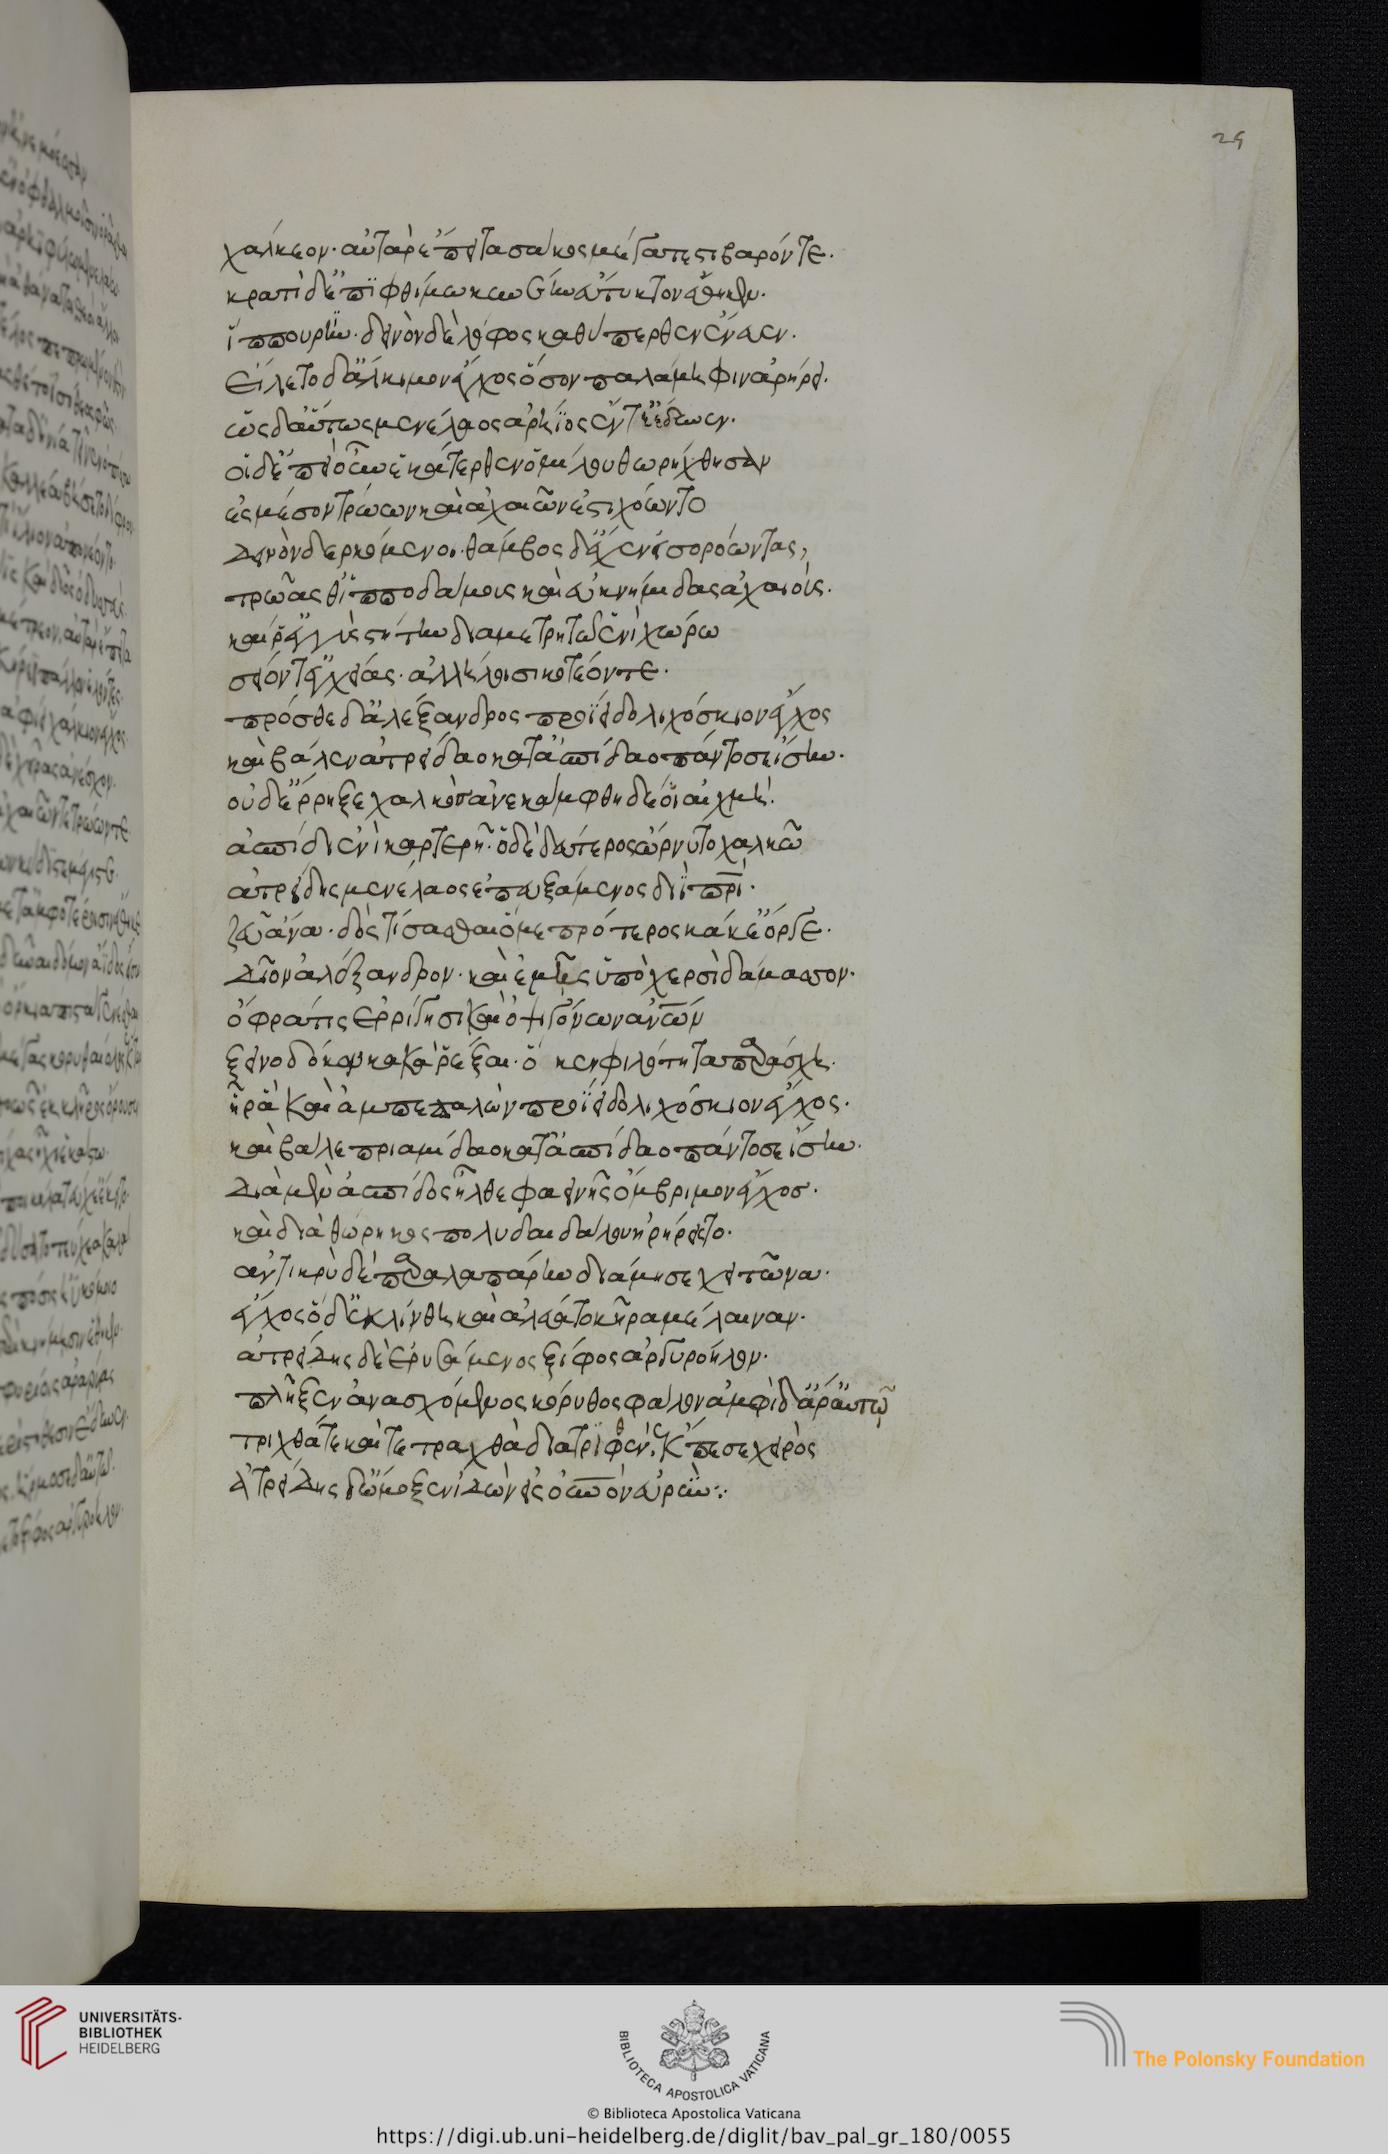 29
χάλκεον· αὐτὰρ ἔπειτα σάκος μέγα τε στιβαρόν τε·
κρατὶ δ' ἐπ' ἰφθίμω κυνέην εὔτυκτον ἔθηκεν·
ἵππουριν· δεινὸν δὲ λόφος καθύπερθεν ἔνευεν·
εἵλετο δ' ἄλκιμον ἔγχος ὅ οἱ παλάμηφιν ἀρήρει·
ὣς δ' αὔτως μενέλαος ἀρήϊος ἔντε' ἔδυνεν·
οἱ δ' ἐπεὶ οὖν ἑκάτερθεν ὁμίλου θωρήχθησαν
ἐς μέσον τρώων καὶ ἀχαιῶν ἐστιχόωντο
δεινὸν δερκόμενοι· θάμβος δ' ἔχεν εἰσορόωντας,
τρῶας θ' ἱπποδάμους καὶ εὐκνήμιδας ἀχαιούς·
καί ῥ' ἐγγὺς στήτην διαμετρητῶ ἐνὶ χώρω
σείοντ' ἐγχείας· ἀλλήλοισι κοτέοντε·
πρόσθε δ' ἀλέξανδρος προΐει δολιχόσκιον ἔγχος
καὶ βάλεν ἀτρείδαο κατ' ἀσπίδα πάντοσ' ἐΐσην·
οὐδ' ἔρρηξε χαλκὸς ἀνεκάμφθη δέ οἱ αἰχμή·
ἀσπίδι ἐνὶ κρατερῆ· ὁ δὲ δεύτερος ὤρνυτο χαλκῶ
ἀτρείδης μενέλαος ἐπευξάμενος διῒ πρί·
ζεῦ ἄνα· δὸς τίσασθαι ὅ με πρότερος κάκ' ἔοργε·
δῖον ἀλέξανδρον· καὶ ἐμῆς ὑπὸ χερσὶ δάμασσον·
ὄφρα τις ἐρρίγησι καὶ ὀψιγόνων ἀνῶν
ξεινοδόκον κακὰ ῥέξαι· ὅ κεν φιλότητα παράσχη·
ἦ ῥὰ καὶ ἀμπεπαλὼν προΐει δολιχόσκιον ἔγχος·
καὶ βάλε πριαμίδαο κατ' ἀσπίδα πάντοσε ἐΐσην·
διὰ μὲν ἀσπίδος ἦλθε φαεινῆς ὄμβριμον ἔγχοσ·
καὶ διὰ θώρηκος πολυδαιδάλου ἠρήρειστο·
ἀντικρὺ δὲ παραὶ λαπάρην διάμησε χιτῶνα·
ἔγχος ὁ δ' ἐκλίνθη καὶ ἀλεύατο κῆρα μέλαιναν·
ἀτρείδης δὲ ἐρυσάμενος ξίφος ἀργυρόηλον·
πλῆξεν ἀνασχόμενος κόρυθος φάλον ἀμφὶ δ' ἄρ' αὐτῶ
τριχθά τε καὶ τετραχθὰ διατρυφὲν ἔκπεσε χειρός
ἀτρείδης δ' ὤμοξεν ἰδὼν εἰς οὐνὸν εὐρύν:·
UNIVERSITÄTS-
BIBLIOTHEK
HEIDELBERG
BIBLIOTECA APOSTOLICA VATICANA
The Polonsky Foundation
© Biblioteca Apostolica Vaticana
https://digi.ub.uni-heidelberg.de/diglit/bav_pal_gr_180/0055